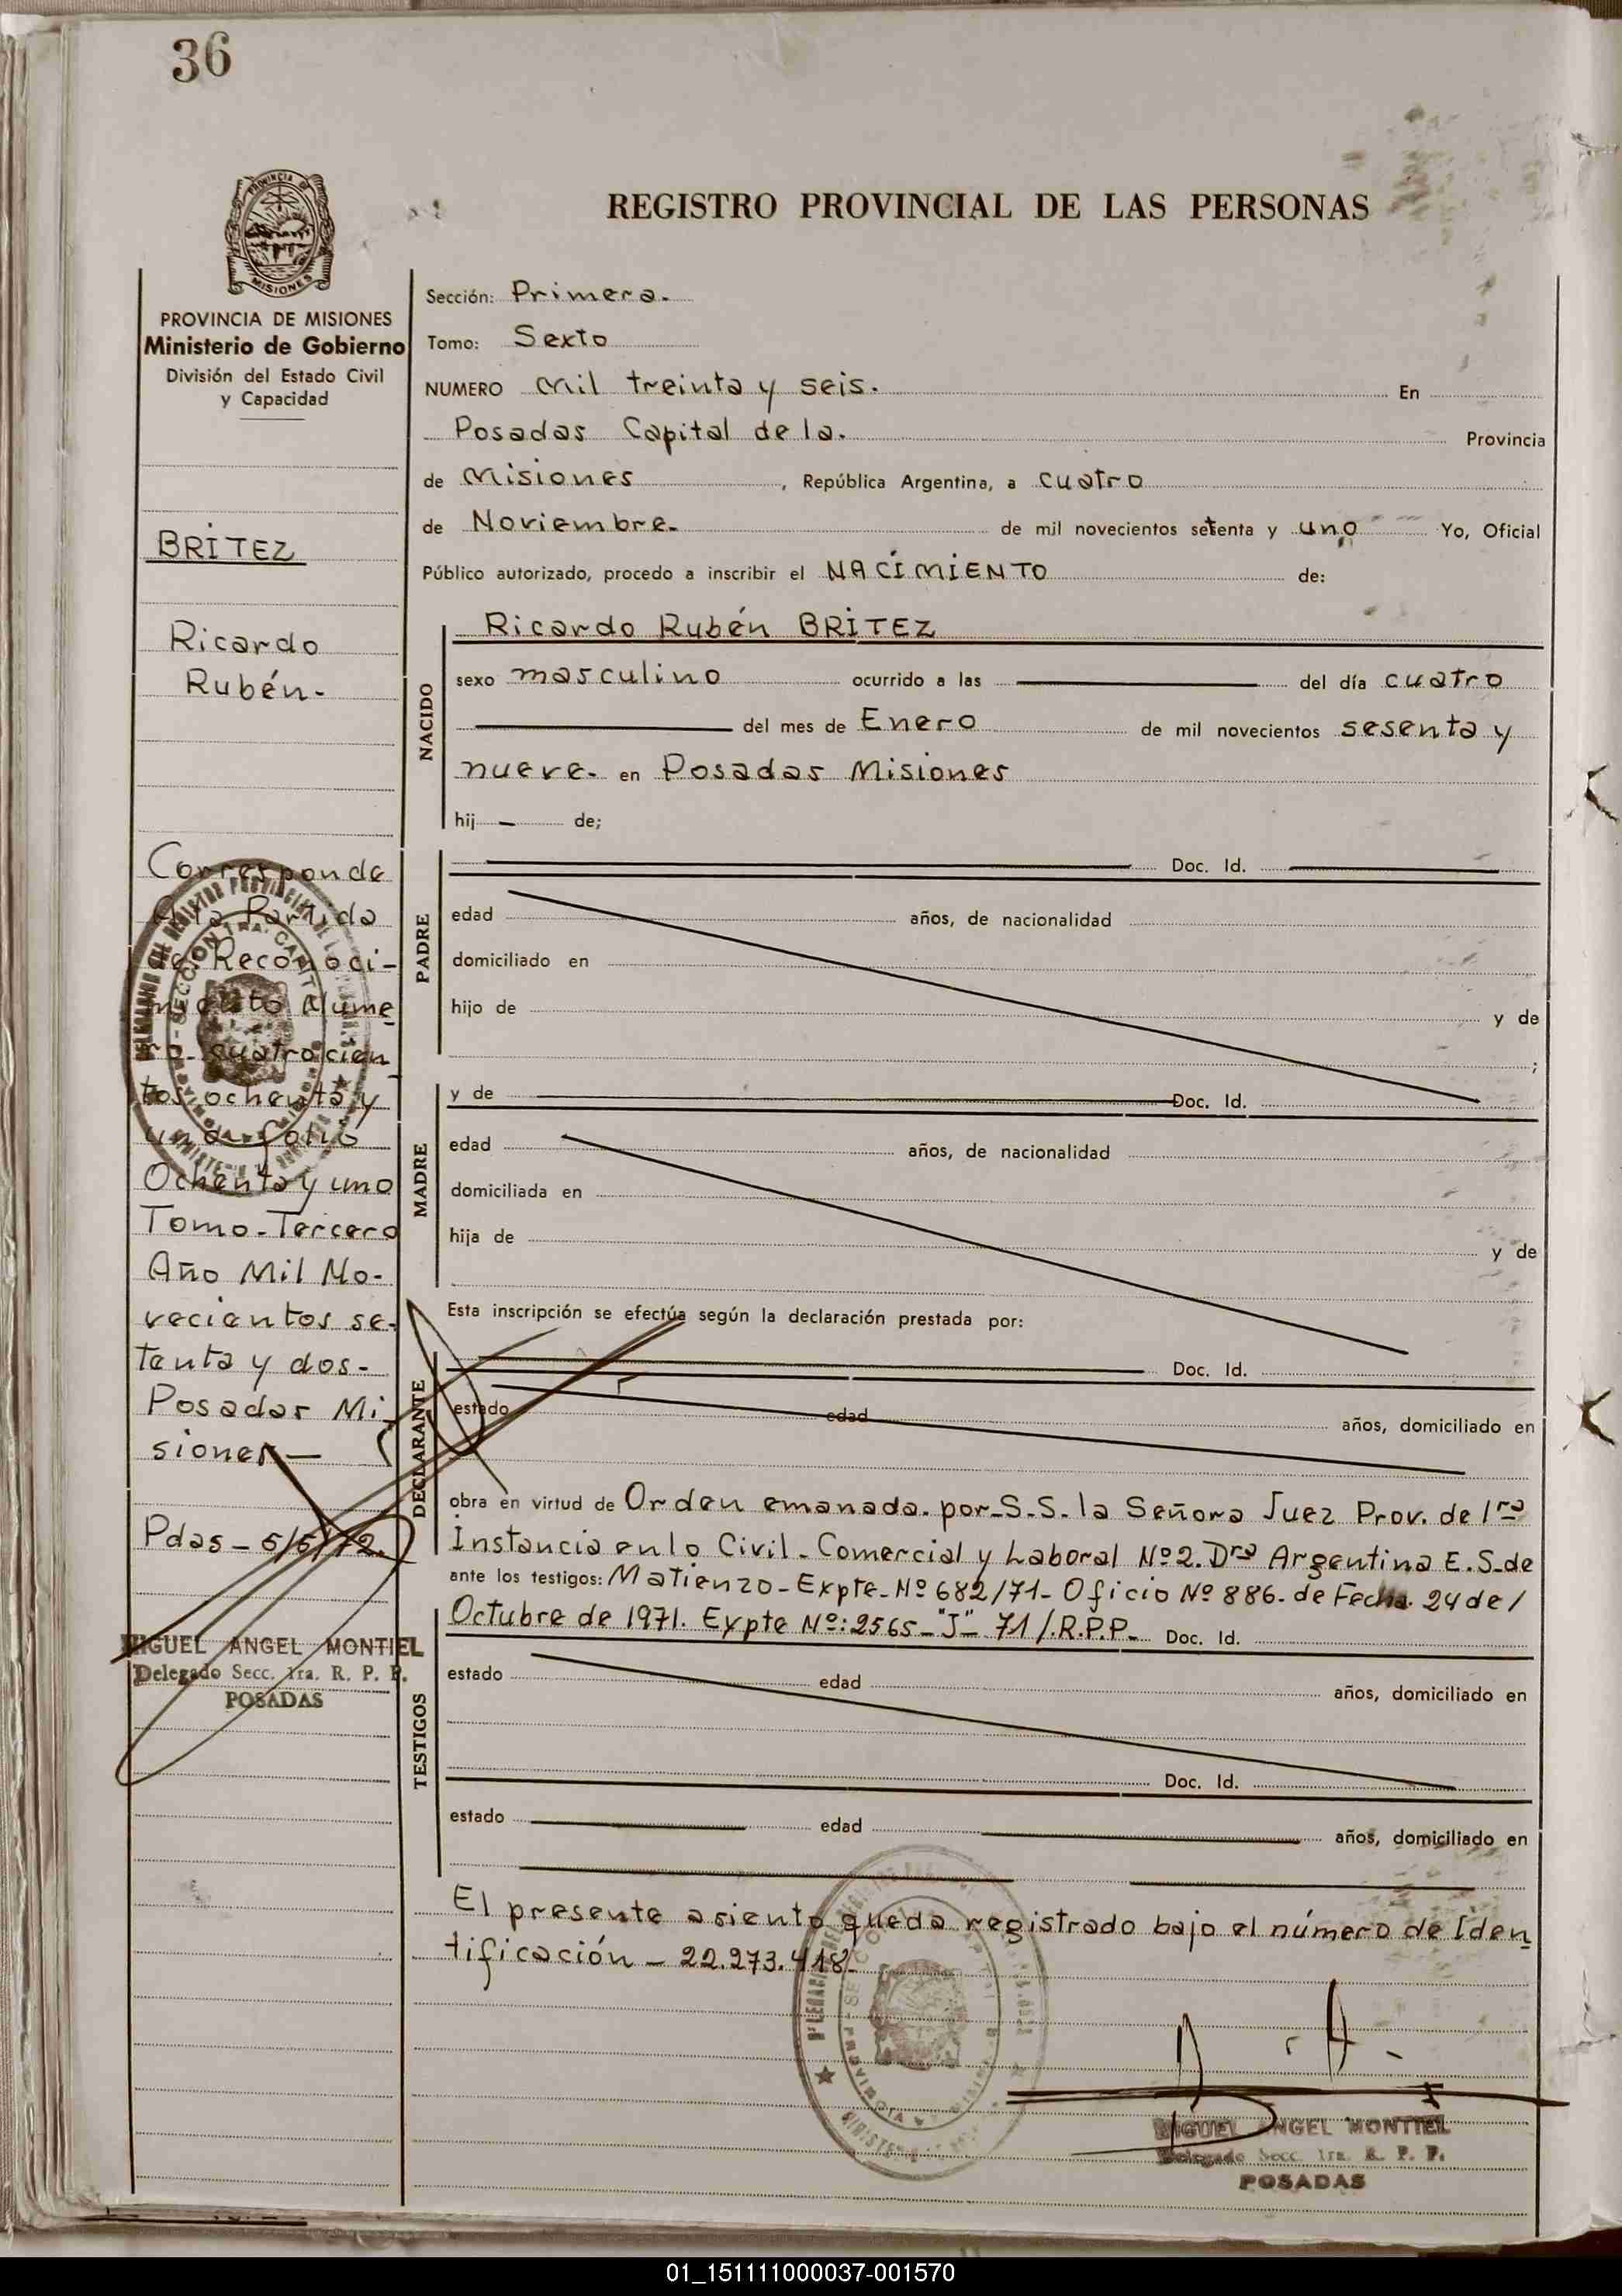 36
PROVINCIA DE
MISIONES
REGISTRO PROVINCIAL DE LAS PERSONAS
PROVINCIA DE MISIONES
Ministerio de Gobierno
División del Estado Civil
y Capacidad
BRITEZ
Ricardo
Rubén-
Corresponde
A la Partida
de Reconoci-
miento Nume
ro cuatrocien
tos ochenta y
uno folio
Ochenta y uno
Tomo-Tercero
Año Mil No-
vecientos se-
tenta y dos-
Posadas Mi
siones—
Pdas - 5/5/72.
MIGUEL ANGEL MONTIEL
Delegado Secc. 1ra. R. P. P.
POSADAS
Sección: Primera.
Tomo: Sexto
NUMERO Mil treinta y seis. En
Posadas Capital de la. Provincia
de Misiones, República Argentina, a cuatro
de Noviembre. de mil novecientos setenta y uno Yo, Oficial
Público autorizado, procedo a inscribir el NACIMIENTO de:
NACIDO
Ricardo Rubén BRITEZ
sexo masculino ocurrido a las del día cuatro
del mes de Enero de mil novecientos sesenta y
nueve. en Posadas Misiones
hij de;
PADRE
Doc. Id.
edad años, de nacionalidad
domiciliado en
hijo de y de
;
MADRE
y de Doc. Id.
edad años, de nacionalidad
domiciliada en
hija de y de
Esta inscripción se efectúa según la declaración prestada por:
DECLARANTE
Doc. Id.
estado edad años, domiciliado en
obra en virtud de Orden emanada. por-S.S. la Señora Juez Prov. de 1ra
Instancia en lo Civil-Comercial y Laboral Nº2. Dra Argentina E.S.de
ante los testigos: Matienzo-Expte-Nº 682/71-Oficio Nº 886.de Fecha. 24 de/
Octubre de 1971. Expte Nº:2565-"J"-71/.R.P.P- Doc. Id.
TESTIGOS
estado edad años, domiciliado en
Doc. Id.
estado edad años, domiciliado en
El presente asiento queda registrado bajo el número de Iden
tificación - 22.273.418-
MIGUEL ANGEL MONTIEL
Delegado Secc. 1ra. R. P. P.
POSADAS
01_151111000037-001570